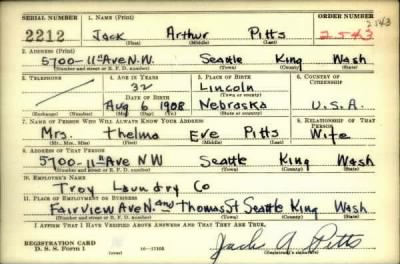 SERIAL NUMBER 1. NAME (Print) ORDER NUMBER
2543
2212 Jack Arthur Pitts 2543
(First) (Middle) (Last)
2. ADDRESS (Print)
5700-11th Ave N.W. Seattle King Wash
(Number and street or R. F. D. number) (Town) (County) (State)
3. TELEPHONE 4. AGE IN YEARS 5. PLACE OF BIRTH 6. COUNTRY OF CITIZENSHIP
32 Lincoln
DATE OF BIRTH (Town or county)
Aug 6 1908 Nebraska U.S.A.
(Exchange) (Number) (Mo.) (Day) (Yr.) (State or country)
7. NAME OF PERSON WHO WILL ALWAYS KNOW YOUR ADDRESS 8. RELATIONSHIP OF THAT PERSON
Mrs. Thelma Eve Pitts Wife
(Mr., Mrs., Miss) (First) (Middle) (Last)
9. ADDRESS OF THAT PERSON
5700-11th Ave NW Seattle King Wash
(Number and street or R. F. D. number) (Town) (County) (State)
10. EMPLOYER'S NAME
Troy Laundry Co
11. PLACE OF EMPLOYMENT OR BUSINESS
Fairview Ave N. and Thomas St Seattle King Wash
(Number and street or R. F. D. number) (Town) (County) (State)
I AFFIRM THAT I HAVE VERIFIED ABOVE ANSWERS AND THAT THEY ARE TRUE.
REGISTRATION CARD
D. S. S. Form 1 16-17105 Jack A. Pitts